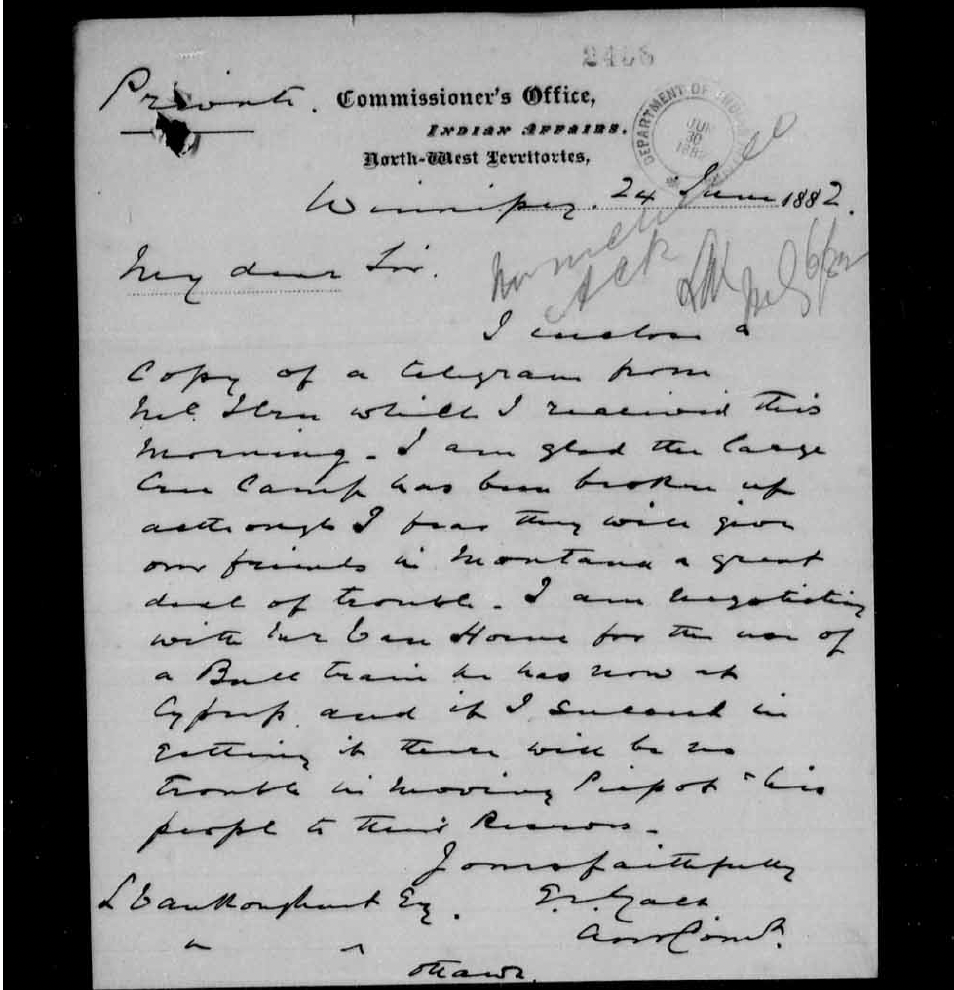 2468
Private. Commissioner's Office,
INDIAN AFFAIRS.
North-West Territories,
DEPARTMENT OF INDIAN
JUN
30
188
Winnipeg. 24 June 1882.
My dear Sir.
Ack
I enclose a
Copy of a telegram from
which I received this
Morning. I am glad the large
Cree Camp has been broken up
although I fear they will give
our friends in Montana a great
deal of trouble. I am negotiating
with Mr Van Horne for the use of
a Bull train he has now at
Cypress and if I succeed in
getting it there will be no
trouble in moving Piepot & his
people to their Reserve.
Yours faithfully
L Vankoughnet Esq. E. T. Galt
Asst Comr.
" "
Ottawa.